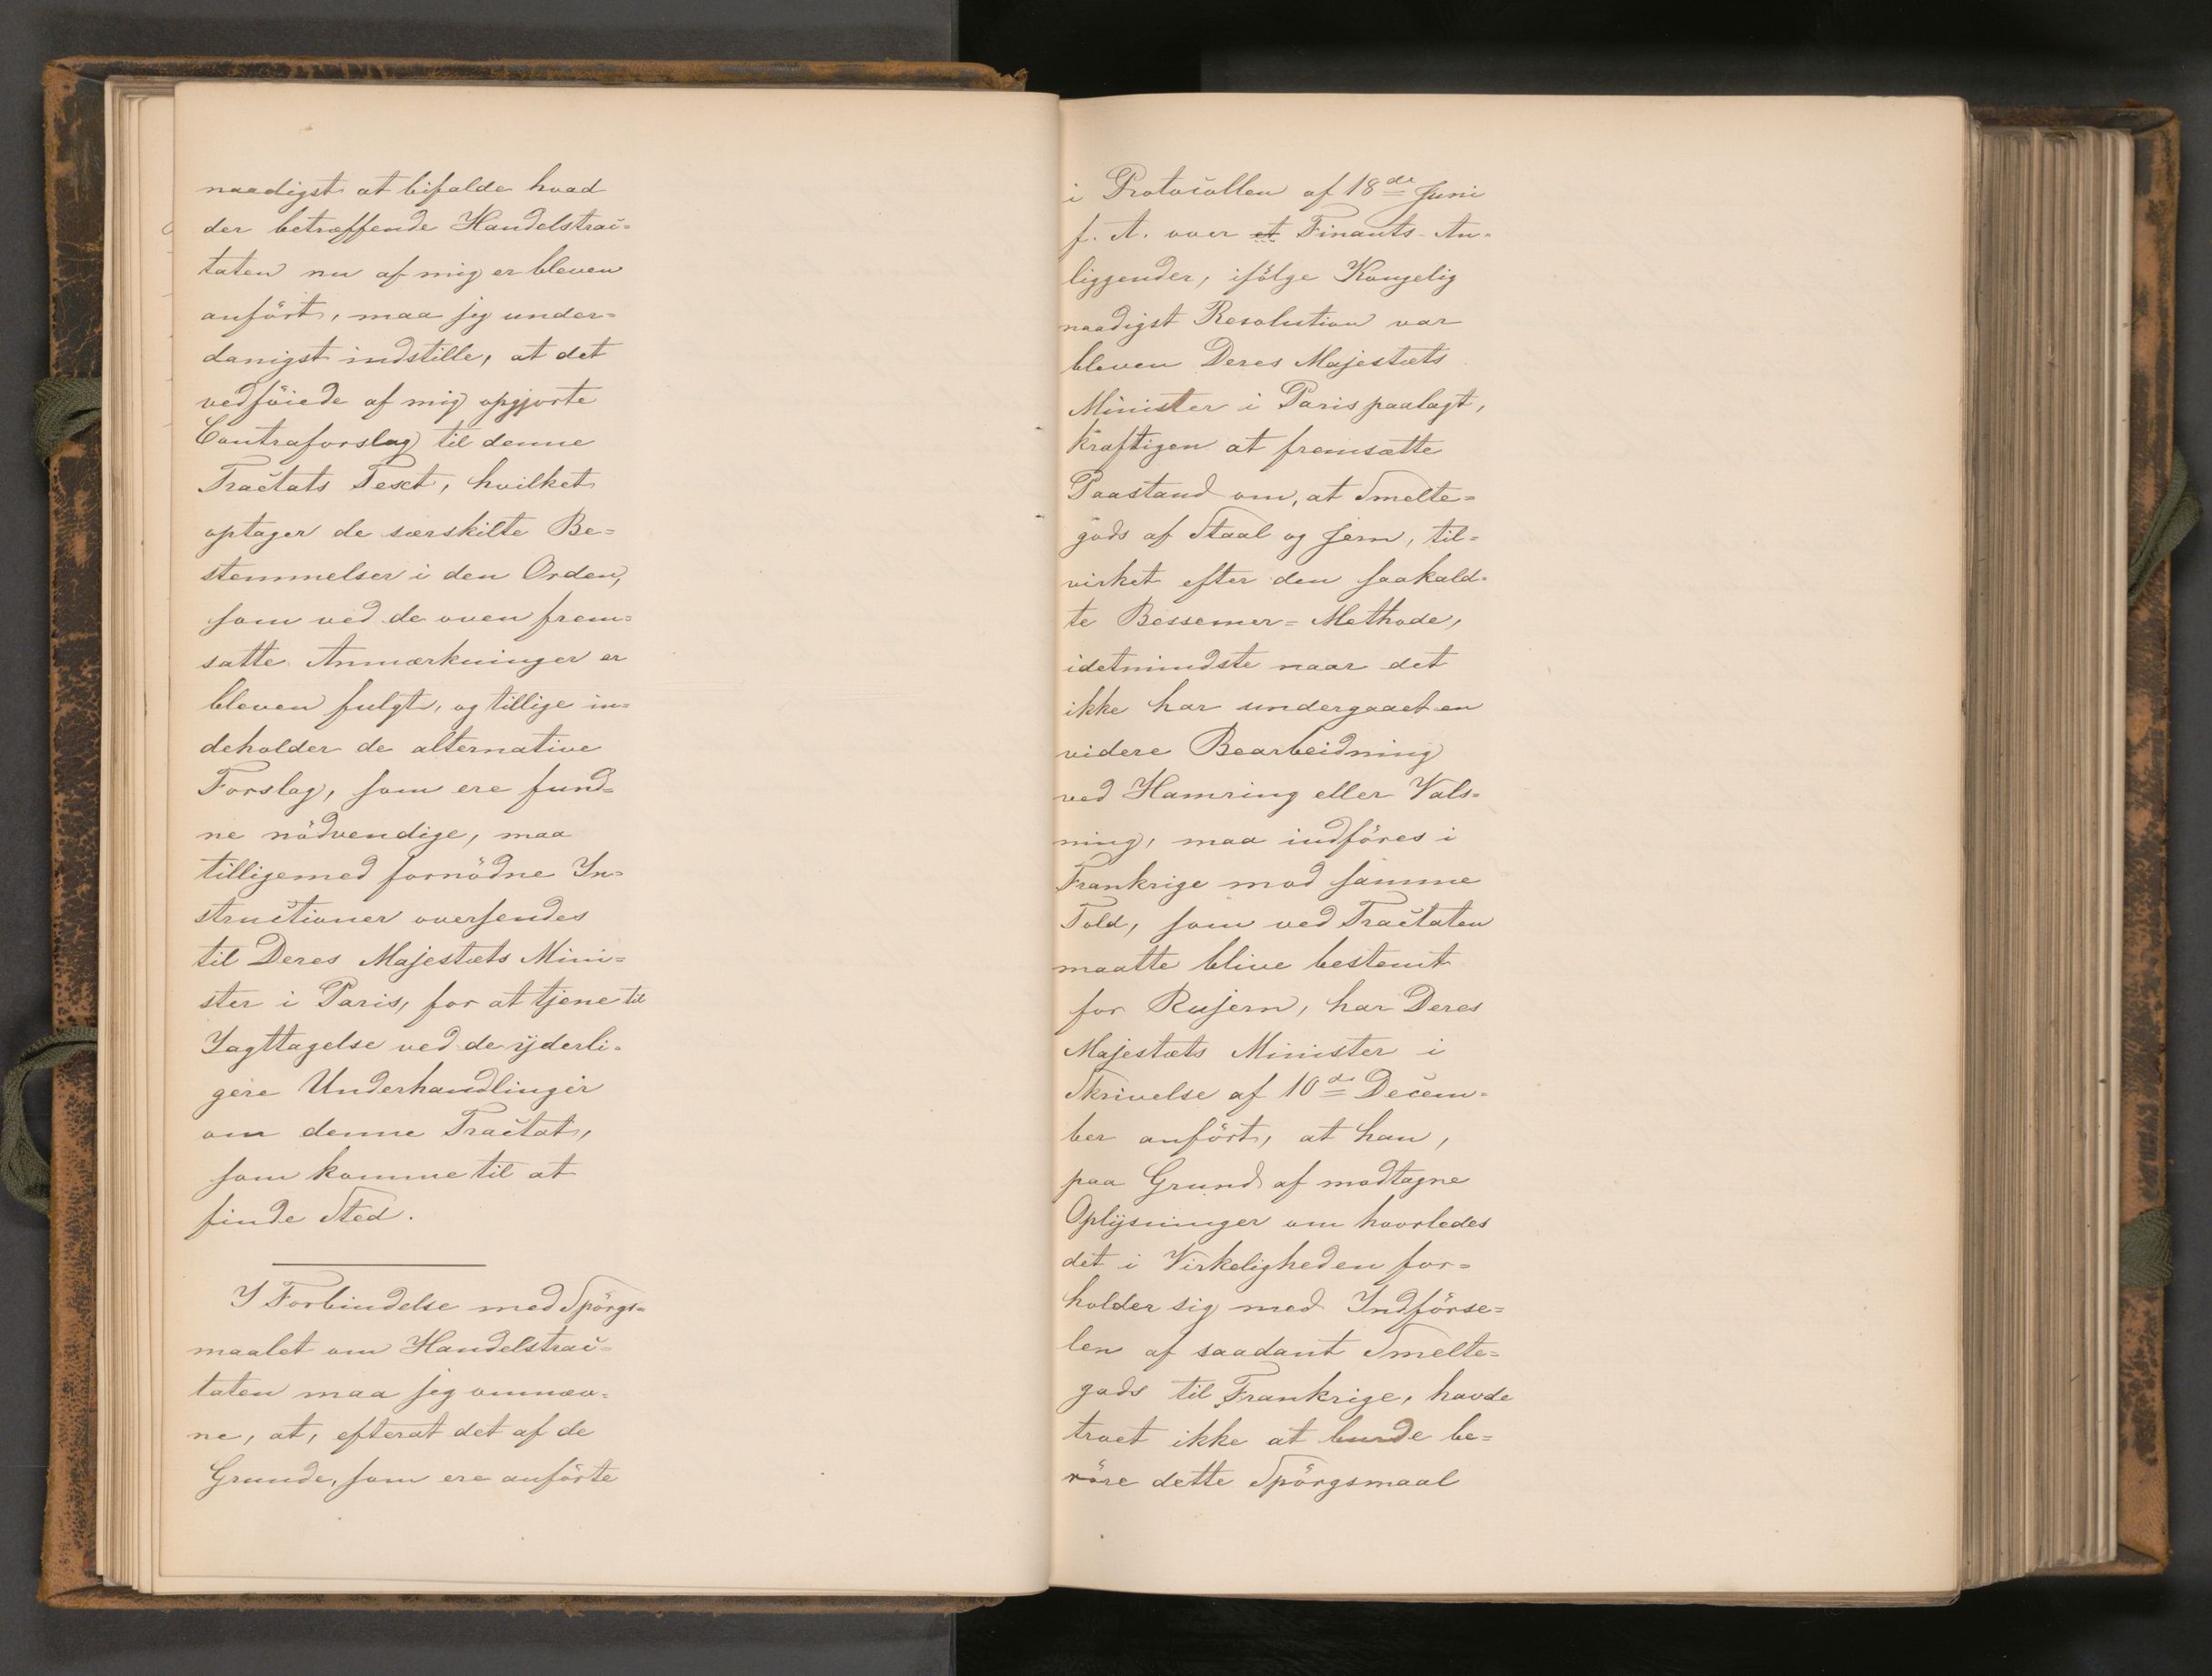 naadigst at bifalde hvad
der betræffende Handelstrac=
taten nu af mig er bleven
anført, maa jeg under=
danigst indstille, at det
vedföiede af mig opgjorte
Contraforslag til denne
Tractats Text, hvilket
optager de særskilte Be=
stemmelser i den Orden,
som ved de oven frem=
satte Anmærkninger er
bleven fulgt, og tillige in=
deholder de alternative
Forslag, som ere fund=
ne nödvendige, maa
tilligemed fornödne In=
structioner oversendes
til Deres Majestæts Mini=
ster i Paris, for at tjene til
Iagttagelse ved de ÿderli=
gere Underhandlinger
om denne Tractat,
som komme til at
finde Sted.
I Forbindelse med Spörgs=
maalet om Handelstrac=
taten maa jeg omnæv=
ne, at, efterat det af de
Grunde, som ere anförte
i Protocollen af 18de Juni
f. A. over et Finants-An=
liggender, ifölge Kongelig
naadigst Resolution var
bleven Deres Majestæts
Minister i Paris paalagt,
kraftigen at fremsætte
Paastand om, at Smelte=
gods af Staal og Jern, til=
virket efter den saakald=
te Bessemer=Methode,
idetmindste naar det
ikke har undergaaet en
videre Bearbeidning
ved Hamring eller Vals=
ning, maa indföres i
Frankrige mod samme
Told, som ved Tractaten
maatte blive bestemt
for Rujern, har Deres
Majestæts Minister i
Skrivelse af 10de Decem=
ber anfört, at han,
paa Grund af modtagne
Oplÿsninger om hvorledes
det i Virkeligheden for=
holder sig med Indförse=
len af saadant Smelte=
gods til Frankrige, havde
troet ikke at burde be=
röre dette Spörgsmaal